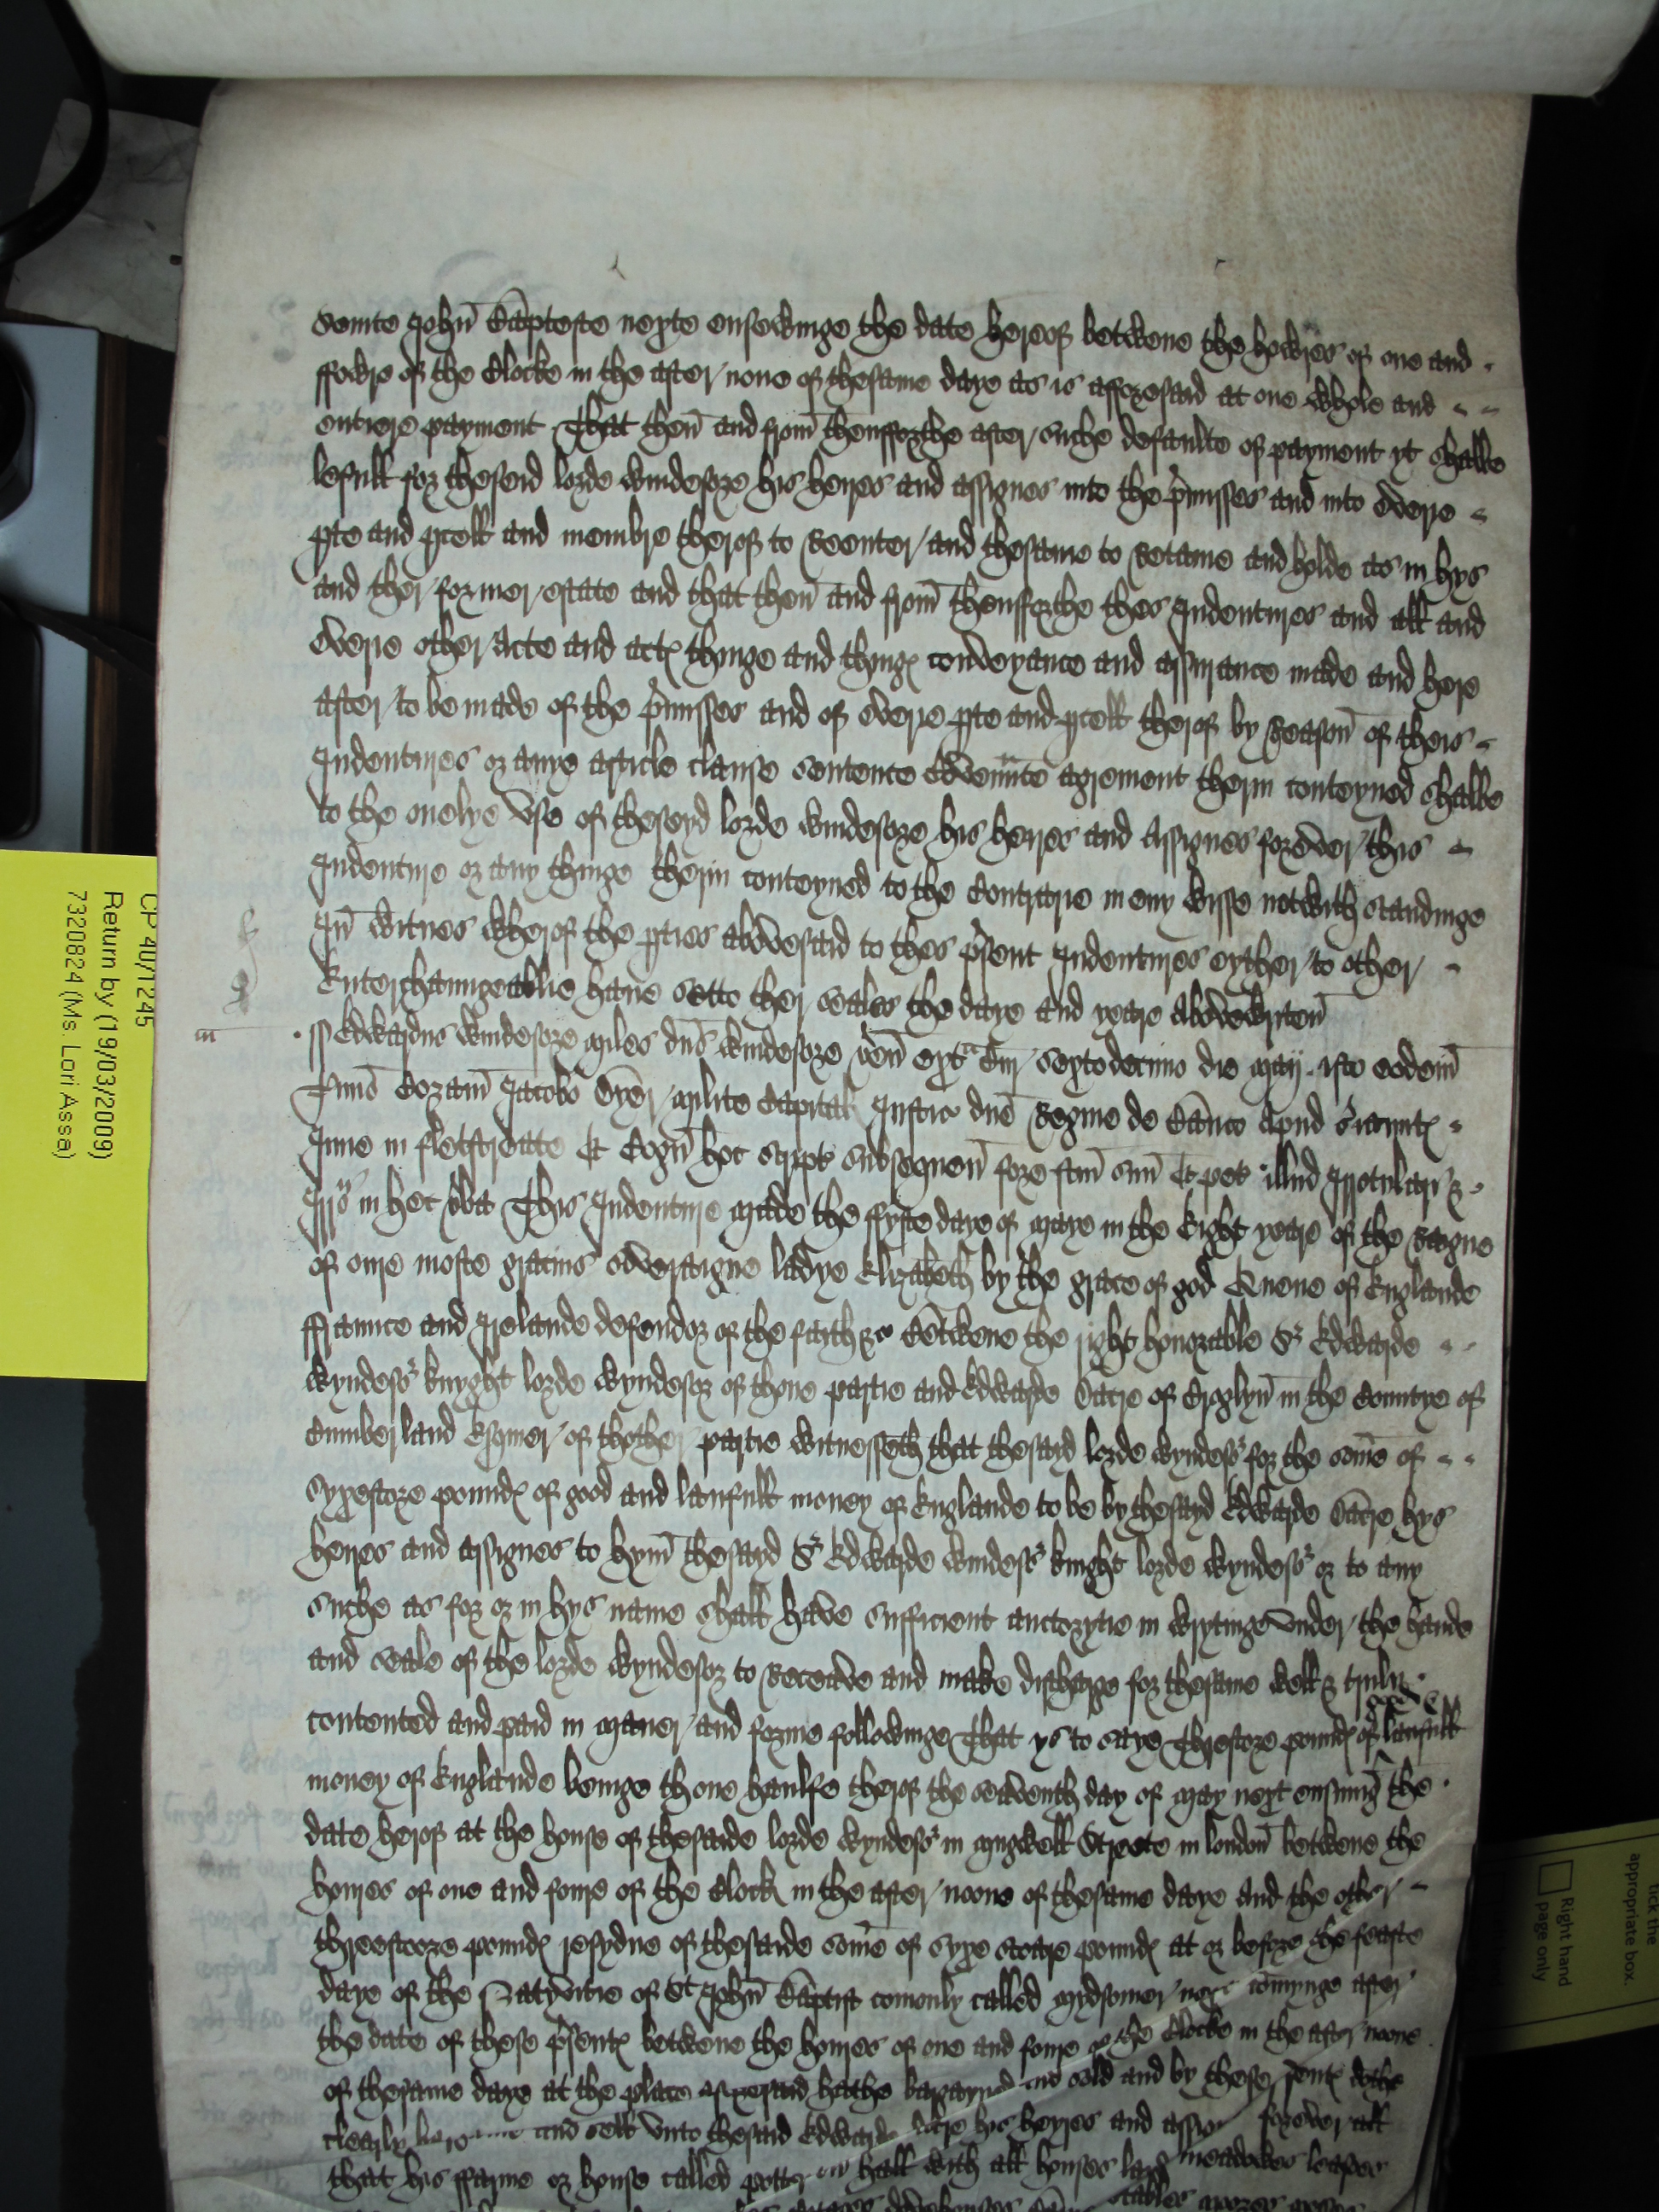 Seinte John Bapteste nexte ensewinge the date hereof betwene the howres of one and
ffowre of the Clocke in the after none of thesame daye as is afforesaid at one whole and
entiere payment That then and from thensfforthe after suche defaulte of payment yt shalbe
lefull for theseid lorde windesore his heires and assignes into the p'misses and into everie
pte and pcell and membre therof to Reenter and thesame to Retaine and holde as in hys
and ther former estate and that then and from thensfforthe thes Indentures and all and
everie other Acte and acts thinge and things conveyance and assurance made and here
after to be made of the p'misses and of everie pte and pcell therof by Reason of theis
Indentures or anye article clause sentence Covennte agrement therin conteyned shalbe
to the onelye use of theseyd lorde windesore his heires and Assignes forever this
Indenture or any thinge therin conteyned to the Contrarie in eny wisse notwith standinge
In witnes wherof the pties abovesaid to thes p'sent Indentures eyther to other
Enterchaungeablie have sette ther seales the daye and yeare abovewriten
m
Edwardus windesore miles dns windesore ven Sextodecimo die Maij isto eodem
Coram Jacobo Dyer milite Capital Justic dne Regine de Banco apud
Inne in fletstreate & Cogn hoc script subsequen fore fcm suu & pet illud Irrotulari &
Irro in hec vba This Indenture made the ffyfte daye of Maye in the Eight yeare of the Raigne
of oure moste gracius soveraigne ladye Elizabeth by the grace of god Quene of Englande
ffraunce and Irelande defendor of the faith &c Betwene the right honorable Sr Edwarde
wyndesor knyght lorde wyndesor of thone partie and Edwarde Dacre of Croglyn in the Countye of
Cumberland Esquier of thother partie witnesseth that thesayd lorde wyndesor for the some of
Syxescore pounds of good and laufull money of Englande to be by thesayd Edwarde Dacre hys
heires and assignes to hym thesayd Sr Edwarde windesor knight lorde wyndesor or to any
suche as for or in hys name shall have sufficient auctorytie in wrytinge under the hande
and seale of the lorde wyndesor to Receave and make discharge for thesame well & truly
contented and paid in maner and forme followinge That ys to saye Threscore pounds of good & laufull
money of Englande beinge thone haulfe therof the seaventh day of May next ensuing the
date herof at the house of thesaide lorde wyndesor in mugwell Streete in london betwene the
houres of one and foure of the Clock in the after noone of thesame daye And the other
threescoore pounds resydue of thesaide some of syxe scoare pounds at or before the feaste
daye of the Natyvitie of St John Baptist comonly called mydsomer next comynge after
the date of these p'sents betwene the houres of one and foure of the Clocke in the after noone
of thesame daye at the place aforesaid hathe bargayned and sold and by these p'sents dothe
clearly bargaine and sell unto thesaid Edwarde Dacre his heyres and assignes forever all
that his fferme or house called hall with all houses lands meadowes leasues